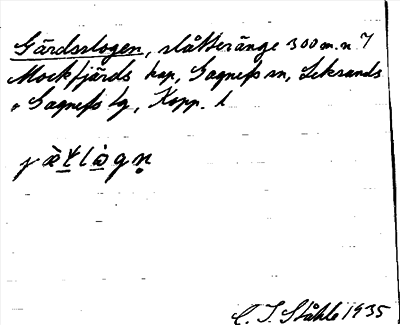 Gärdsslogen, slåtteränge 300 m. n. 7
Mockfjärds kap, Gagnefs sn, Leksands
o Gagnefs tg, Kopp. l
C. I. Ståhle 1935